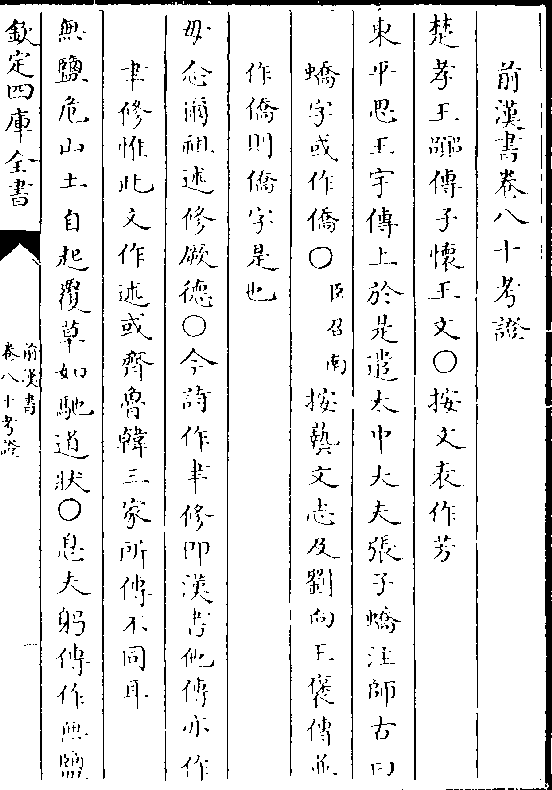 前漢書卷八十考證
楚孝王囂傳子懷王文○按文表作芳
東平思王宇傳上於是遣太中大夫張子蟜注師古曰
蟜字或作僑○臣召南按藝文志及劉向王褒傳並
作僑則僑字是也
毋念爾祖述修厥德○今詩作聿修即漢書他傳亦作
聿修惟此文作述或齊魯韓三家所傳不同耳
無鹽危山土自起覆草如馳道狀○息夫躬傳作無鹽
欽定四庫全書
前漢書
卷八十考證
一